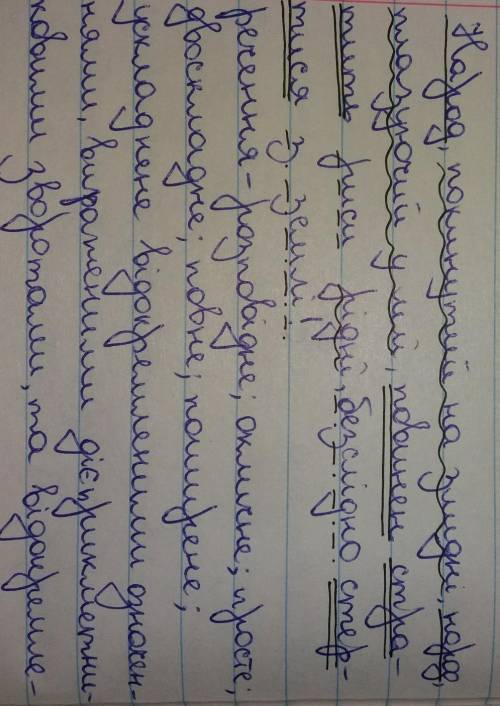 Народ, покинутий на злидні, народ,
плазуючий у млі, повинен стра-
тить риси рідні, безслідно стер-
тися з землі!
речення - розповідне; окличне; просте;
двоскладне; повне; поширене;
ускладнене відокремленими означен-
нями, вираженими дієприкметни-
ковими зворотами, та відокремле-